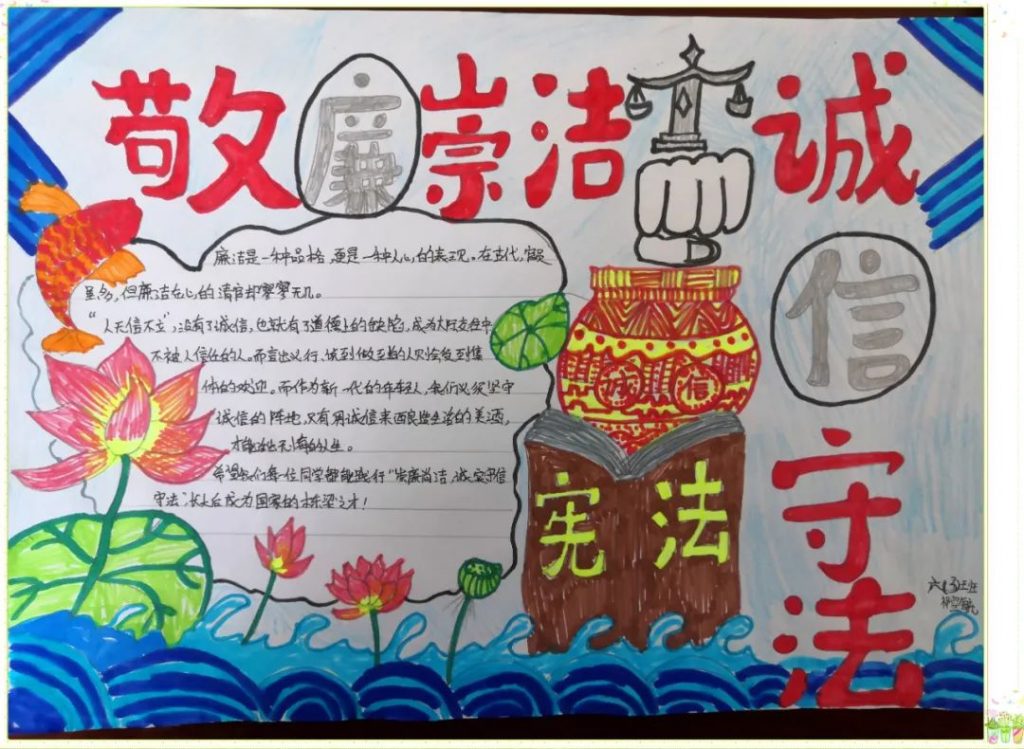 敬廉崇洁 诚
信
守
法
廉洁是一种品格，更是一种人心的表现。在古代，官员
虽多，但廉洁在心的清官却寥寥无几。
"人无信不立"，没有了诚信，也就有了道德上的缺陷，成为
不被人信任的人。而言出必行、说到做到的人
的欢迎。而作为新一代的年轻人，我们必须坚守
诚信的阵地，只有用诚信来 的美酒，
才能 的人生。
希望我们每一位同学都能践行"崇廉尚洁，诚实守信
守法"，长大后成为国家的栋梁之才！
诚 信
宪法